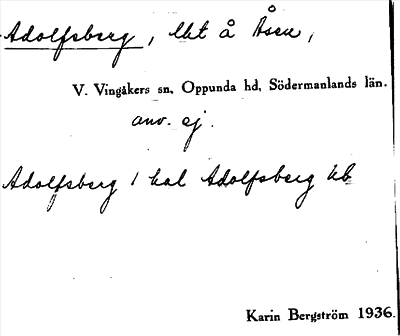 Adolfsberg, lht å Åsen,
V. Vingåkers sn, Oppunda hd, Södermanlands län.
anv. ej.
Adolfsberg 1 kal Adolfsberg kb
Karin Bergström 1936.